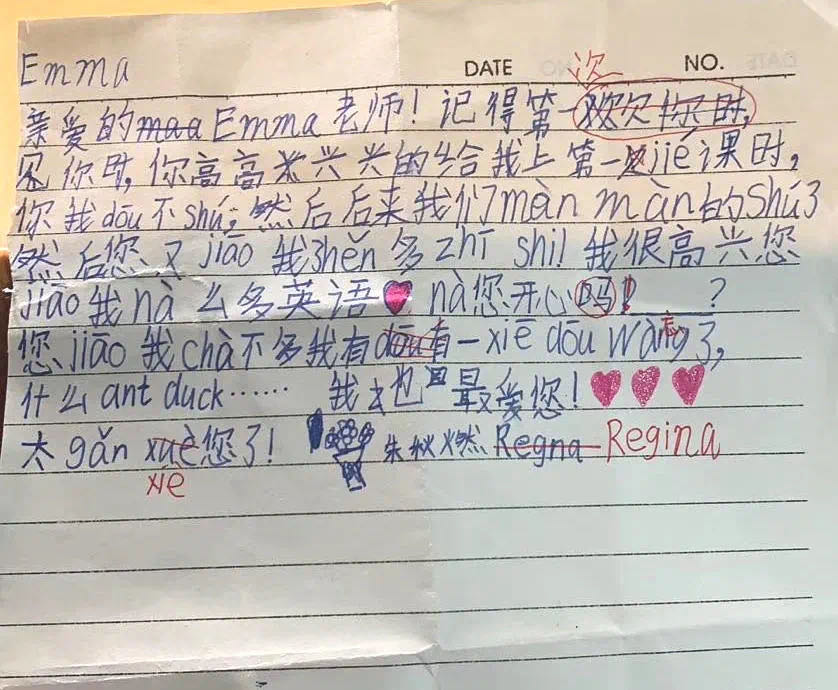 Emma
DATE NO.
次
亲爱的maa Emma老师！记得第一次欠你时，
见你时，你高高兴兴的给我上第一jié课时，
你我dōu不shú；然后后来我们màn màn的shú了
然后您又jiāo我zhěn多zhī shi！我很高兴您
jiāo我nà么多英语 nà您开心吗！？
您jiāo我chà不多我有dōu有一xiē dōu wàng了，
什么ant duck…… 我也最爱您！
太gǎn xuè您了！ 朱秋燃 Regna Regina
xie